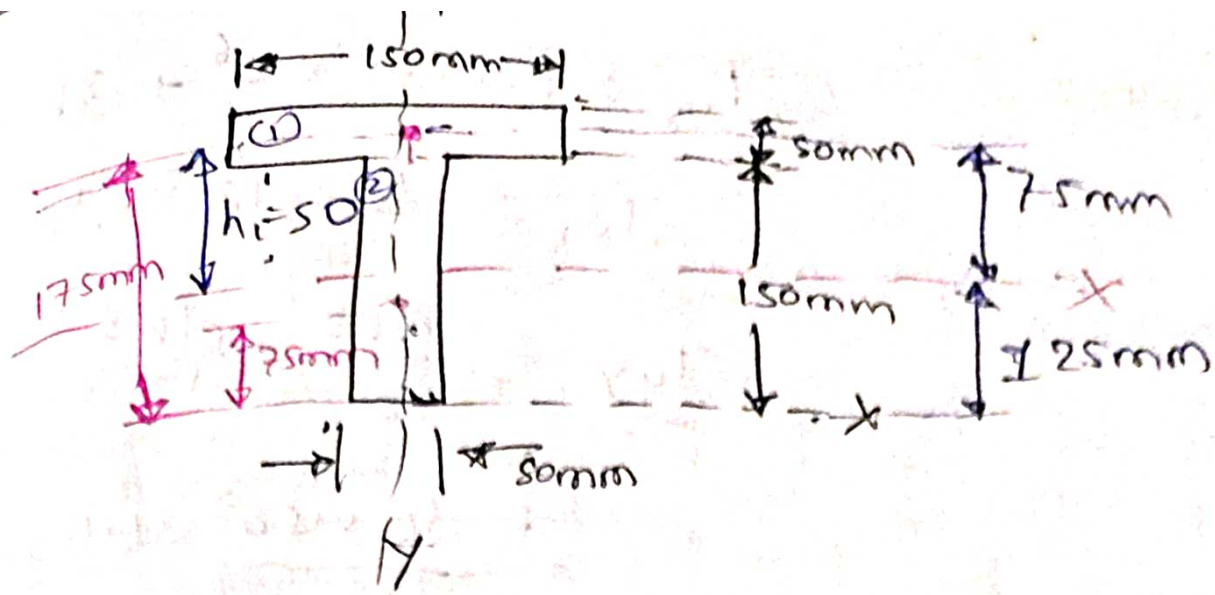 150mm
①
50mm
②
75mm
h₁=50
175mm
150mm
X
75mm
125mm
X
50mm
Y